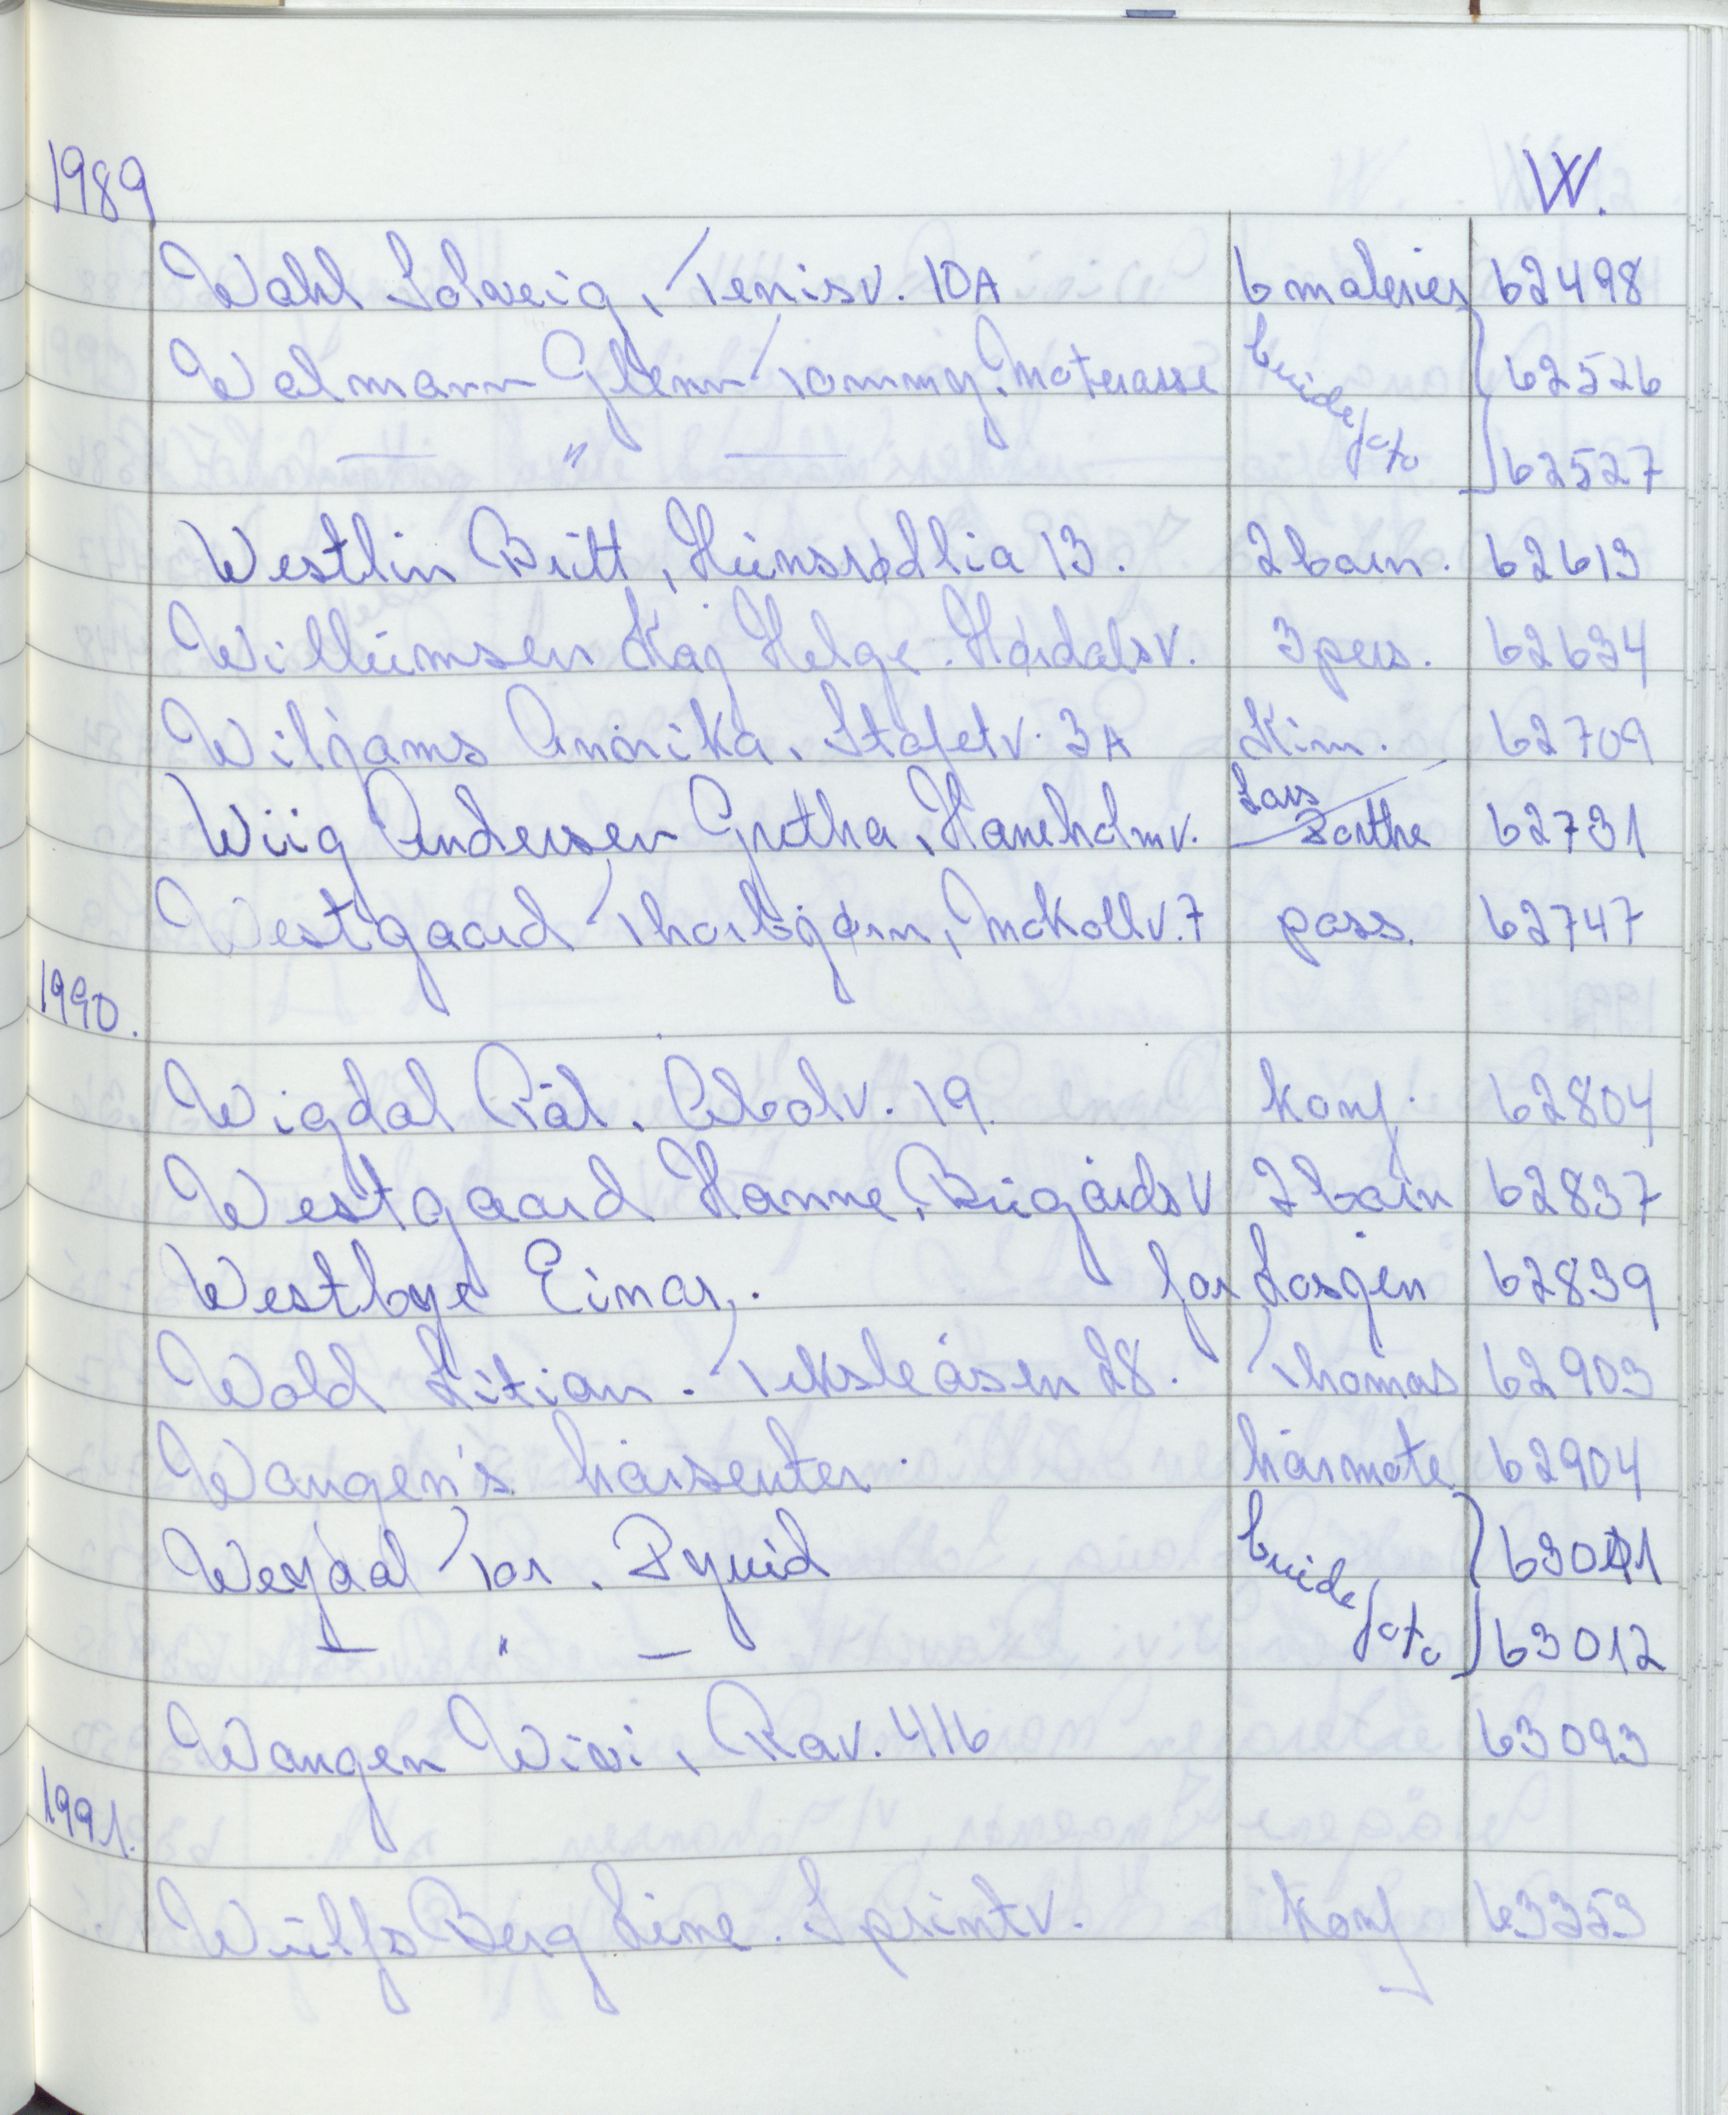 1989 W.
Wahl Solveig, Tenisv. 10A 6 malerier 62498
Walmann Glenn Tommy, Moterasse brude/foto 62526
— " — 62527
Westlin Britt, Heimsrødlia 13. 2 barn. 62613
Willumsen Kaj Helge. Hårdalsv. 3 pers. 62634
Wiljams Annrika. Stafetv. 3A Kim. 62709
Wiig Andersen Grethe, Haneholmv. Lars Dorthe 62731
Westgaard Thorbjørn, Mokollv. 7 pass. 62747
1990.
Wigdal Pål. Abolv. 19. konf. 62804
Westgaard Hanne, Brigårdsv 2 barn 62837
Westbye Einar,. for Losjen 62839
Wold Litian. Teksleåsen 28. Thomas 62903
Wangen's hårsenter. hårmote 62904
Weydal Tor. brude/foto 63011
— " — 63012
Wangen Wivi, Rav. 416 63093
1991.
Wulfs Berg Line. Sprintv. konf 63353